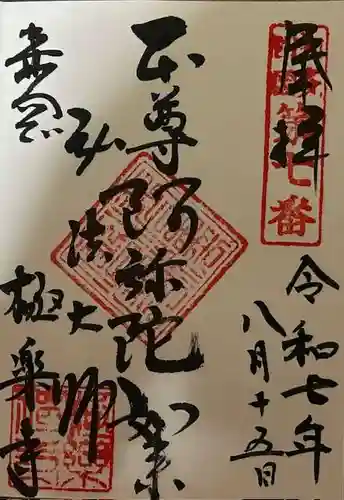 奉拝
第七番
令和七年
八月十五日
本尊阿弥陀如来
弘法大師
極楽寺